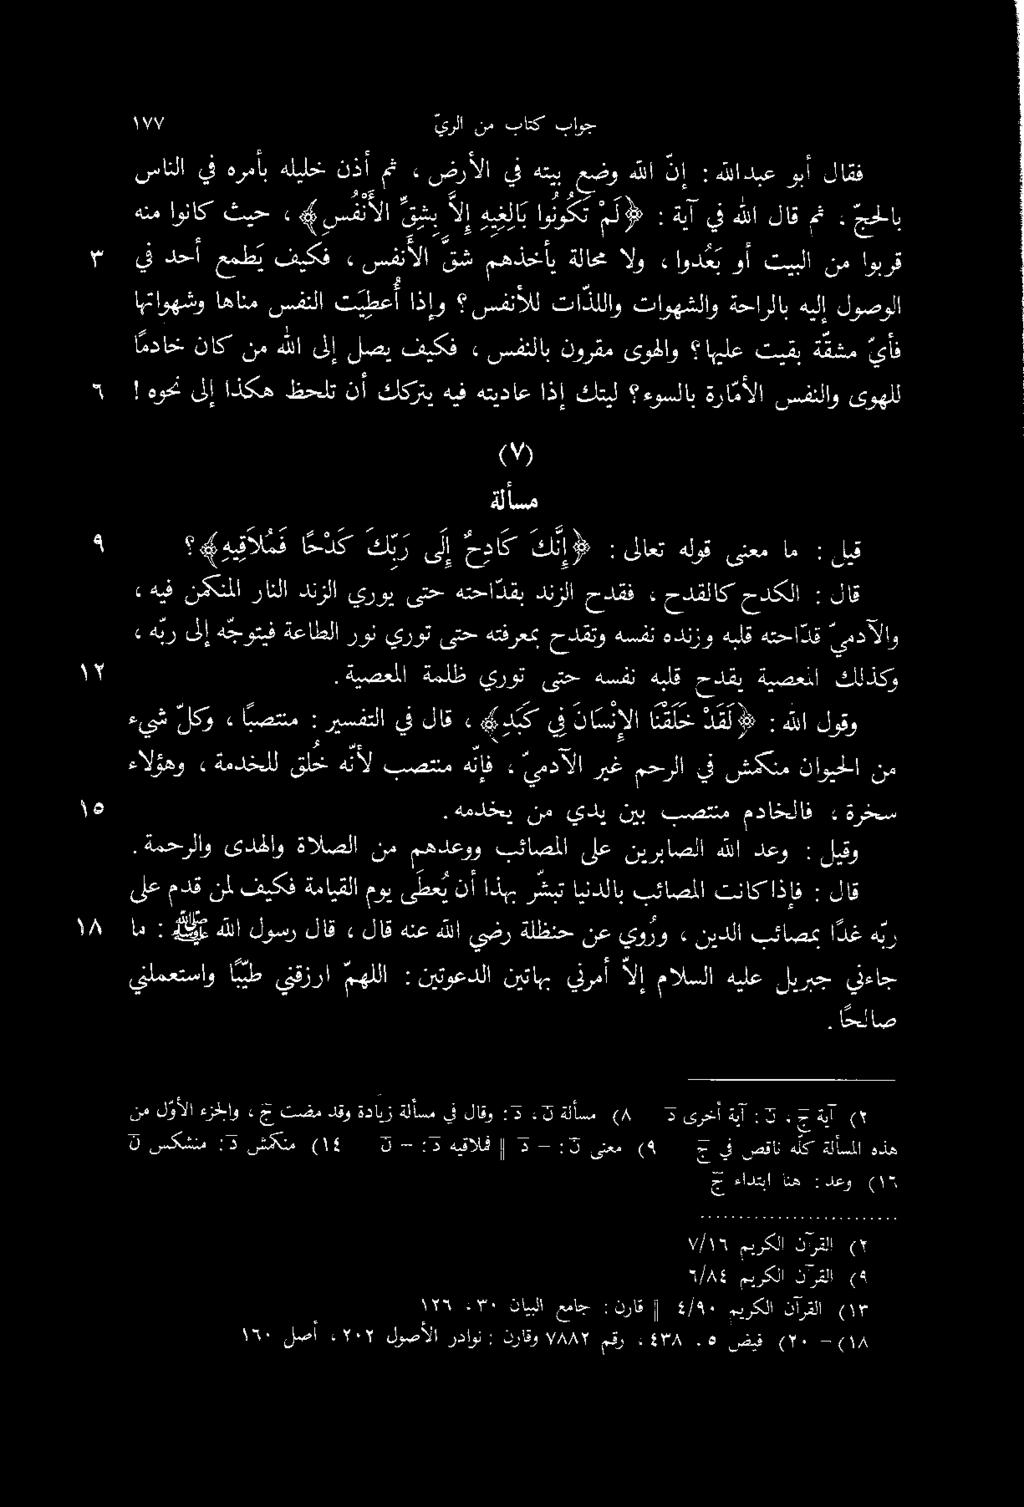 جواب كتاب من الريّ ١٧٧
فقال أبو عبدالله : إنّ الله وضع بيته في الأرض ، ثم أذن خليله بأمره في الناس
بالحجّ ، ثم قال الله في آية : ﴿لَمْ تَكُونُوا بَالِغِيهِ إِلاَّ بِشِقِّ الأَنْفُسِ﴾ ، حيث كانوا منه
قربوا من البيت أو بَعُدوا ، ولا محالة يأخذهم شقّ الأنفس ، فكيف يَطمع أحد في ٣
الوصول إليه بالراحة والشهوات واللذّات للأنفس ؟ وإذا أُعطِيَت النفس مناها وشهواتها
فأيّ مشقّة بقيت عليها ؟ والهوى مقرون بالنفس ، فكيف يصل إلى الله من كان خادمًا
للهوى والنفس الأمّارة بالسوء ؟ ليتك إذا عاديته فيه يتركك أن تلحظ هكذا إلى نحوه ! ٦
(٧)
مسألة
قيل : ما معنى قوله تعالى : ﴿إِنَّكَ كَادِحٌ إِلَى رَبِّكَ كَدْحًا فَمُلاَقِيهِ﴾ ؟ ٩
قال : الكدح كالقدح ، فقدح الزند بقدّاحته حتى يوري الزند النار الممكن فيه ،
والآدميّ قدّاحته قلبه وزنده نفسه وتقدح بمعرفته حتى توري نور الطاعة فيتوجّه إلى ربّه ،
وكذلك المعصية يقدح قلبه نفسه حتى توري ظلمة المعصية . ١٢
وقول الله : ﴿لَقَدْ خَلَقْنَا الإِنْسَانَ فِي كَبَدٍ﴾ ، قال في التفسير : منتصبًا ، وكلّ شيء
من الحيوان منكمش في الرحم غير الآدميّ ، فإنّه منتصب لأنّه خُلق للخدمة ، وهؤلاء
سخرة ، فالخادم منتصب بين يدي من يخدمه . ١٥
وقيل : وعد الله الصابرين على المصائب ووعدهم من الصلاة والهدى والرحمة .
قال : فإذا كانت المصائب بالدنيا تبشّر بهذا أن يُعطَى يوم القيامة فكيف لمن قدم على
ربّه غدًا بمصائب الدين ، ورُوي عن حنظلة رضي الله عنه قال ، قال رسول الله ﷺ : ما ١٨
جاءني جبريل عليه السلام إلاّ أمرني بهاتين الدعوتين : اللهمّ ارزقني طيّبًا واستعملني
صالحًا .
٢) آية ج ، ن : آية أخرى د ٨) مسألة ن ، د : وقال في مسألة زيادة وقد تمضت ج ، والجزء الأوّل من
هذه المسألة كلّه ناقص في ج ٩) معنى ن : – د || فملاقيه د : – ن ١٤) منكمش د : منشكس ن
١٦) وعد : هنا ابتداء ج
٢) القرآن الكريم ٧/١٦
٩) القرآن الكريم ٦/٨٤
١٣) القرآن الكريم ٤/٩٠ || قارن : جامع البيان ٣٠ ، ١٢٦
١٨) – ٢٠) فيض ٥ ، ٤٣٨ ، رقم ٧٨٨٢ وقارن : نوادر الأصول ٢٠٢ ، أصل ١٦٠